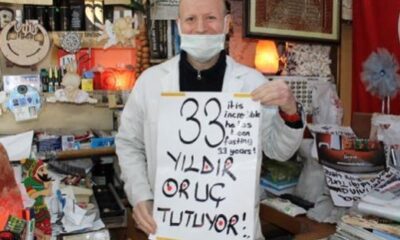 33
it is
incredible
he has
been
fasting
33 years!
YILDIR
ORUÇ
TUTUYOR!